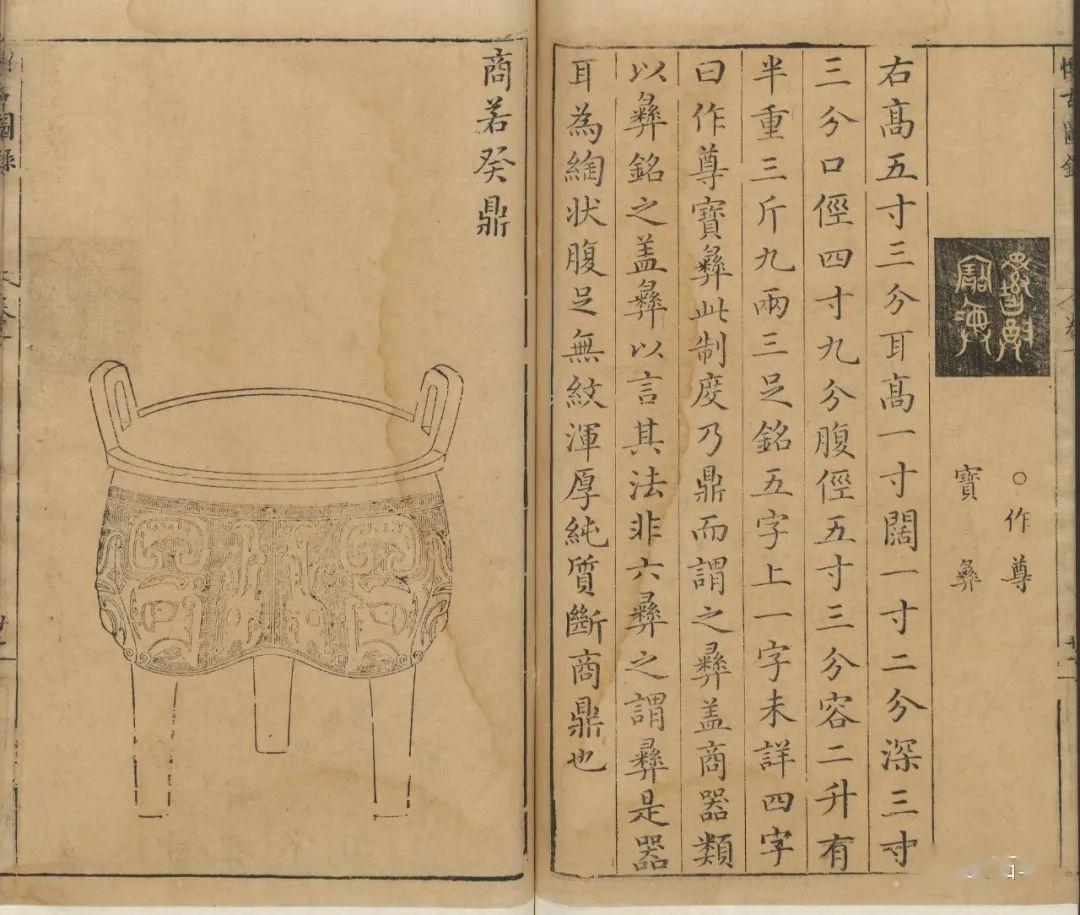 作尊
寶彝
右髙五寸三分耳髙一寸闊一寸二分深三寸
三分口徑四寸九分腹徑五寸三分容二升有
半重三斤九兩三足銘五字上一字未詳四字
曰作尊寶彝此制度乃鼎而謂之彝盖商器類
以彝銘之盖彝以言其法非六彝之謂彝是器
耳為綯状腹足無紋渾厚純質斷商鼎也
商若癸鼎